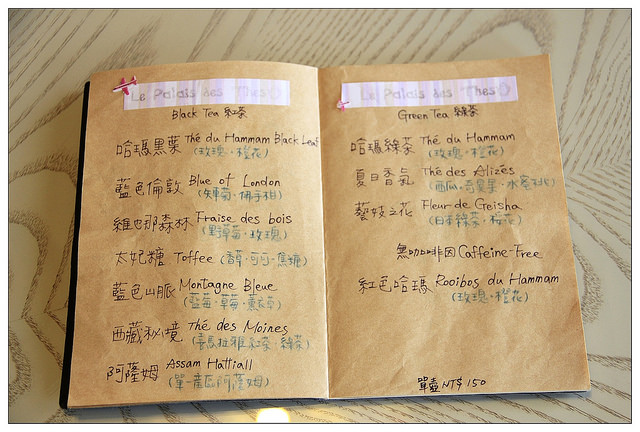 Le Palais des Thés
Black Tea 紅茶
哈瑪黑葉 Thé du Hammam Black Leaf
(玫瑰·橙花)
藍色倫敦 Blue of London
(矢車菊·佛手柑)
維也那森林 Fraise des bois
(野草莓·玫瑰)
太妃糖 Toffee (香草·可可·焦糖)
藍色山脈 Montagne Bleue
(藍莓·草莓·薰衣草)
西藏秘境 Thé des Moines
(喜馬拉雅紅茶·綠茶)
阿薩姆 Assam Hattiall
(單一產區阿薩姆)
Le Palais des Thés
Green Tea 綠茶
哈瑪綠茶 Thé du Hammam
(玫瑰·橙花)
夏日香氣 Thé des Alizés
(西瓜·奇異果·水蜜桃)
藝妓之花 Fleur de Geisha
(日本綠茶·櫻花)
無咖啡因 Caffeine-Free
紅色哈瑪 Rooibos du Hammam
(玫瑰·橙花)
單壺 NT$ 150